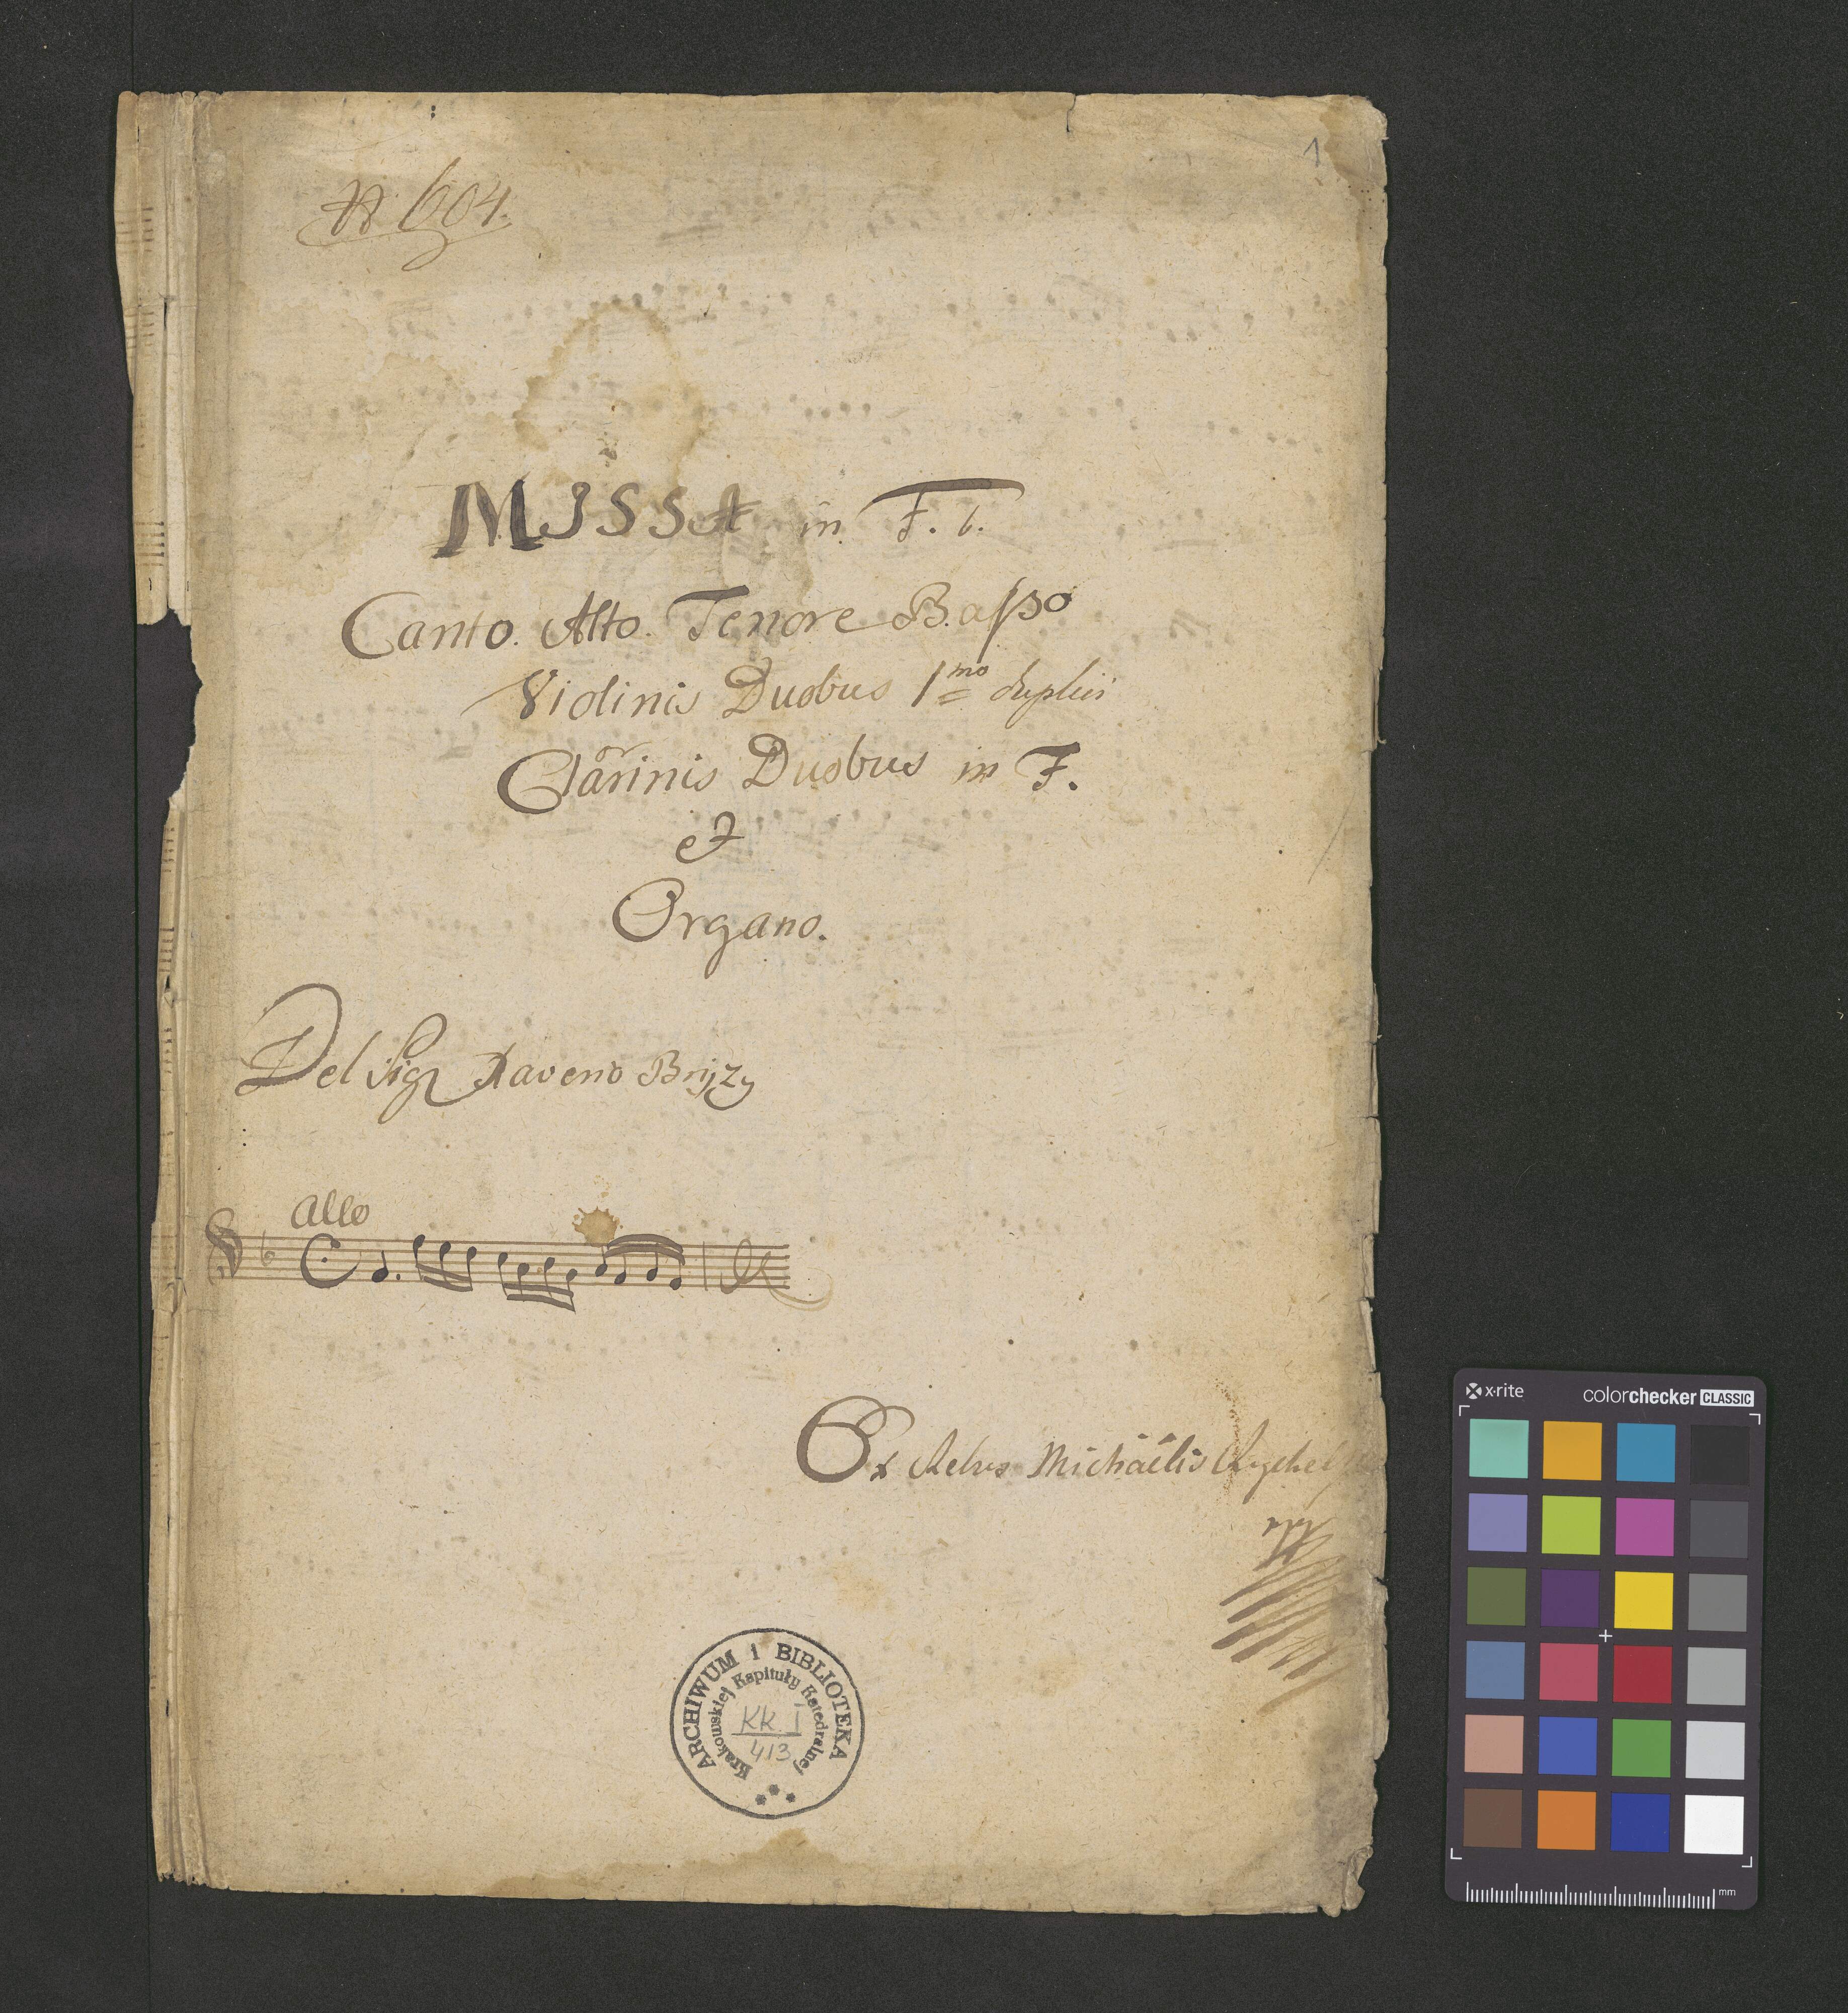 1
N. 604.
MISSA in F. b.
Canto. Alto. Tenore B.asso
Violinis Duobus 1mo duplici
Clarinis Duobus in F.
et
Organo.
Del Sig Brijzy
Allo
Ex Michaëlis
ARCHIWUM I BIBLIOTEKA
Krakowskiej Kapituły Katedralnej
KK. I
413
x·rite colorchecker CLASSIC
mm